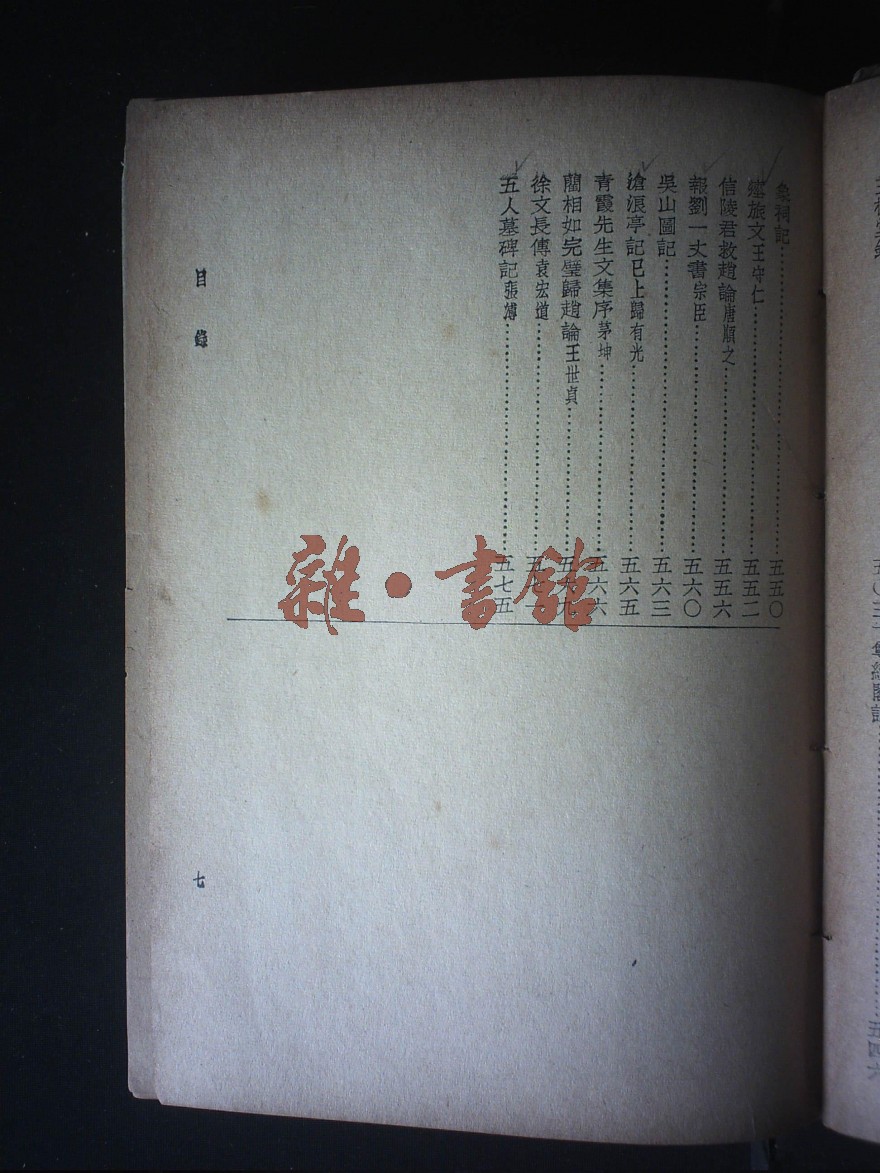 象祠記……五五〇
瘞旅文王守仁……五五二
信陵君救趙論唐順之……五五六
報劉一丈書宗臣……五六〇
吳山圖記……五六三
滄浪亭記已上歸有光……五六五
青霞先生文集序茅坤……五六六
藺相如完璧歸趙論王世貞……五六九
徐文長傳袁宏道……五七一
五人墓碑記張溥……五七五
目錄
七
雜·書館
五四六